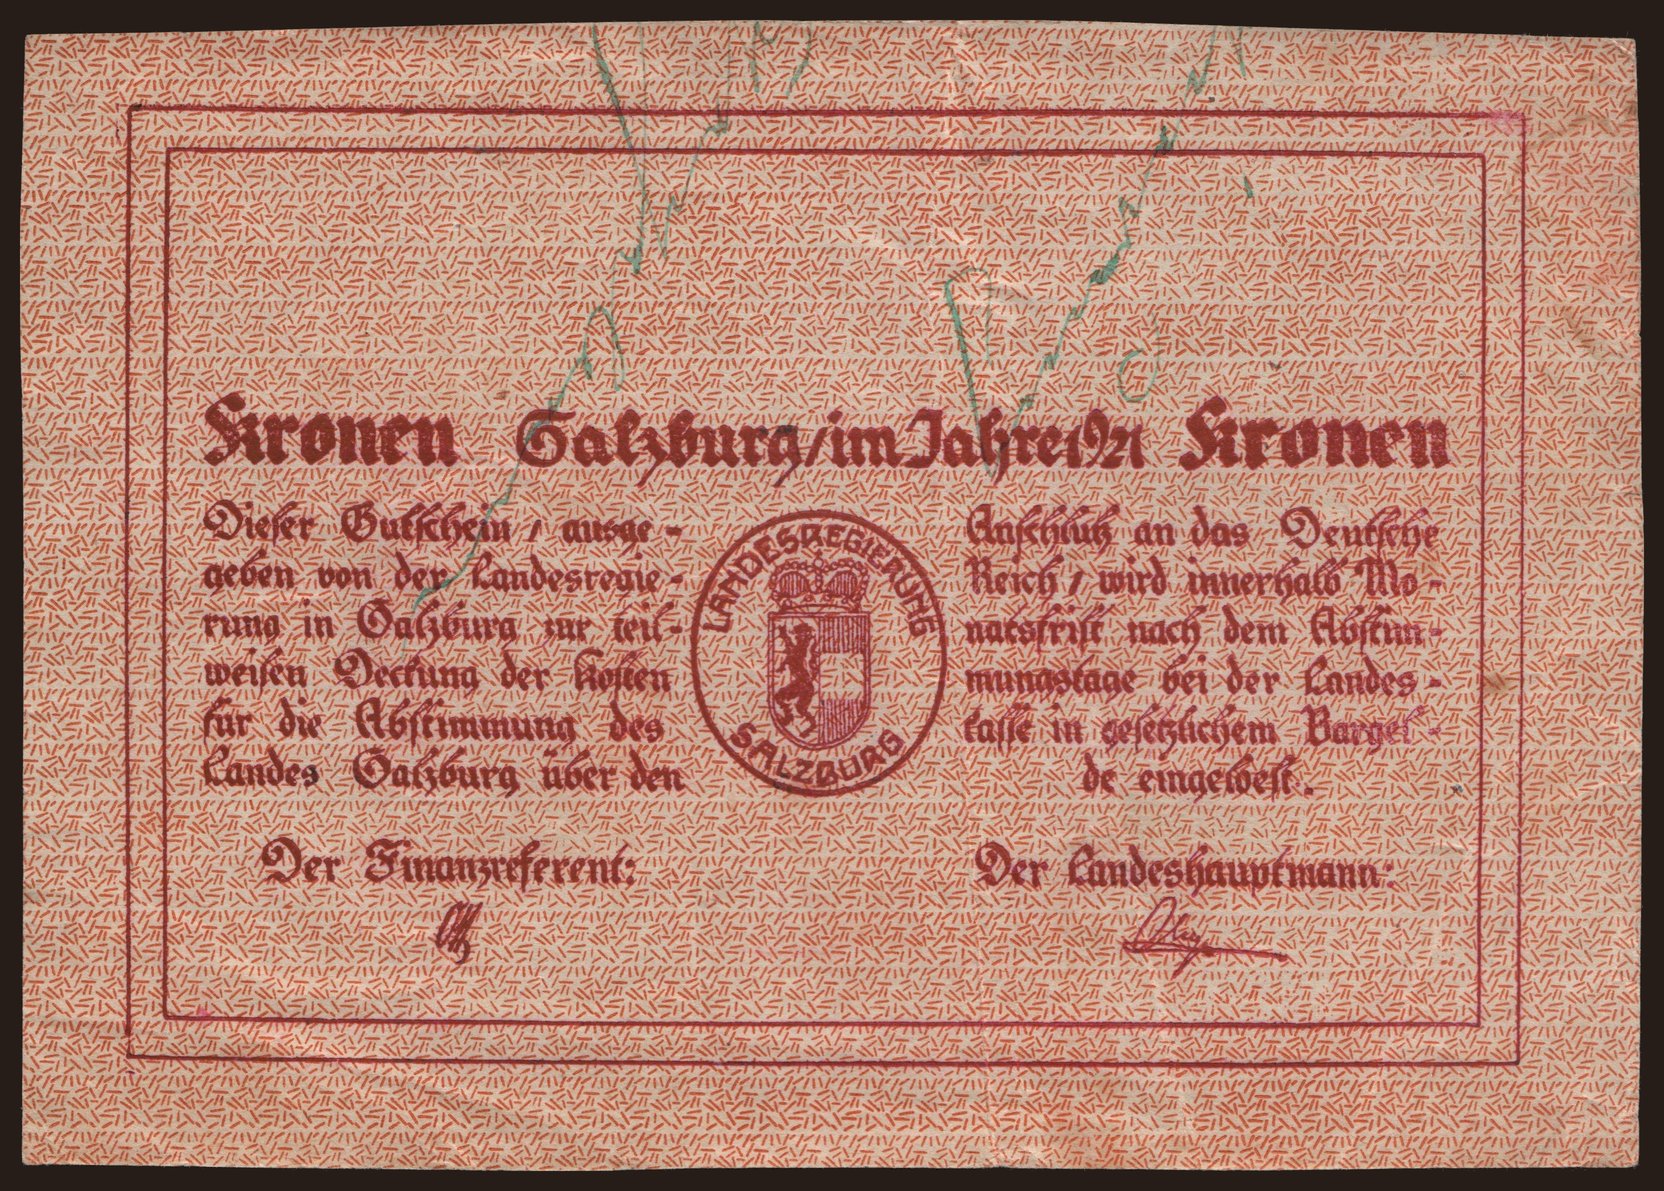 Kronen Salzburg/im Jahre 1921 Kronen
Dieser Gutschein / ausge-
geben von der Landesregie-
rung in Salzburg zur teil-
weisen Deckung der Kosten
für die Abstimmung des
Landes Salzburg über den
LANDESREGIERUNG
SALZBURG
Anschluß an das Deutsche
Reich / wird innerhalb Mo-
natsfrist nach dem Abstim-
mungstage bei der Landes-
kasse in gesetzlichem Bargel-
de eingelöst.
Der Finanzreferent:
Der Landeshauptmann: